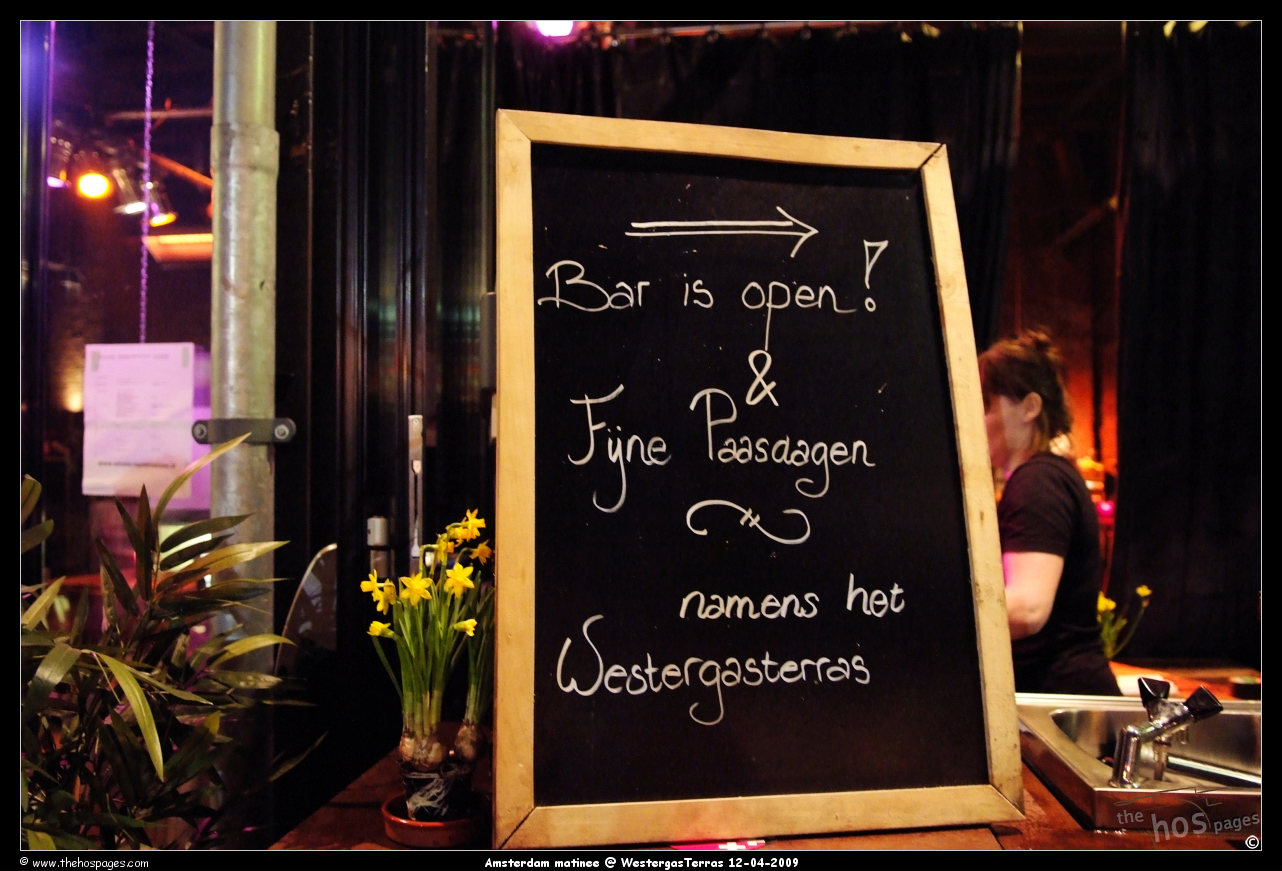 Bar is open!
&
Fijne Paasdagen
namens het
Westergasterras
the hos pages
©
© www.thehospages.com
Amsterdam matinee @ WestergasTerras 12-04-2009